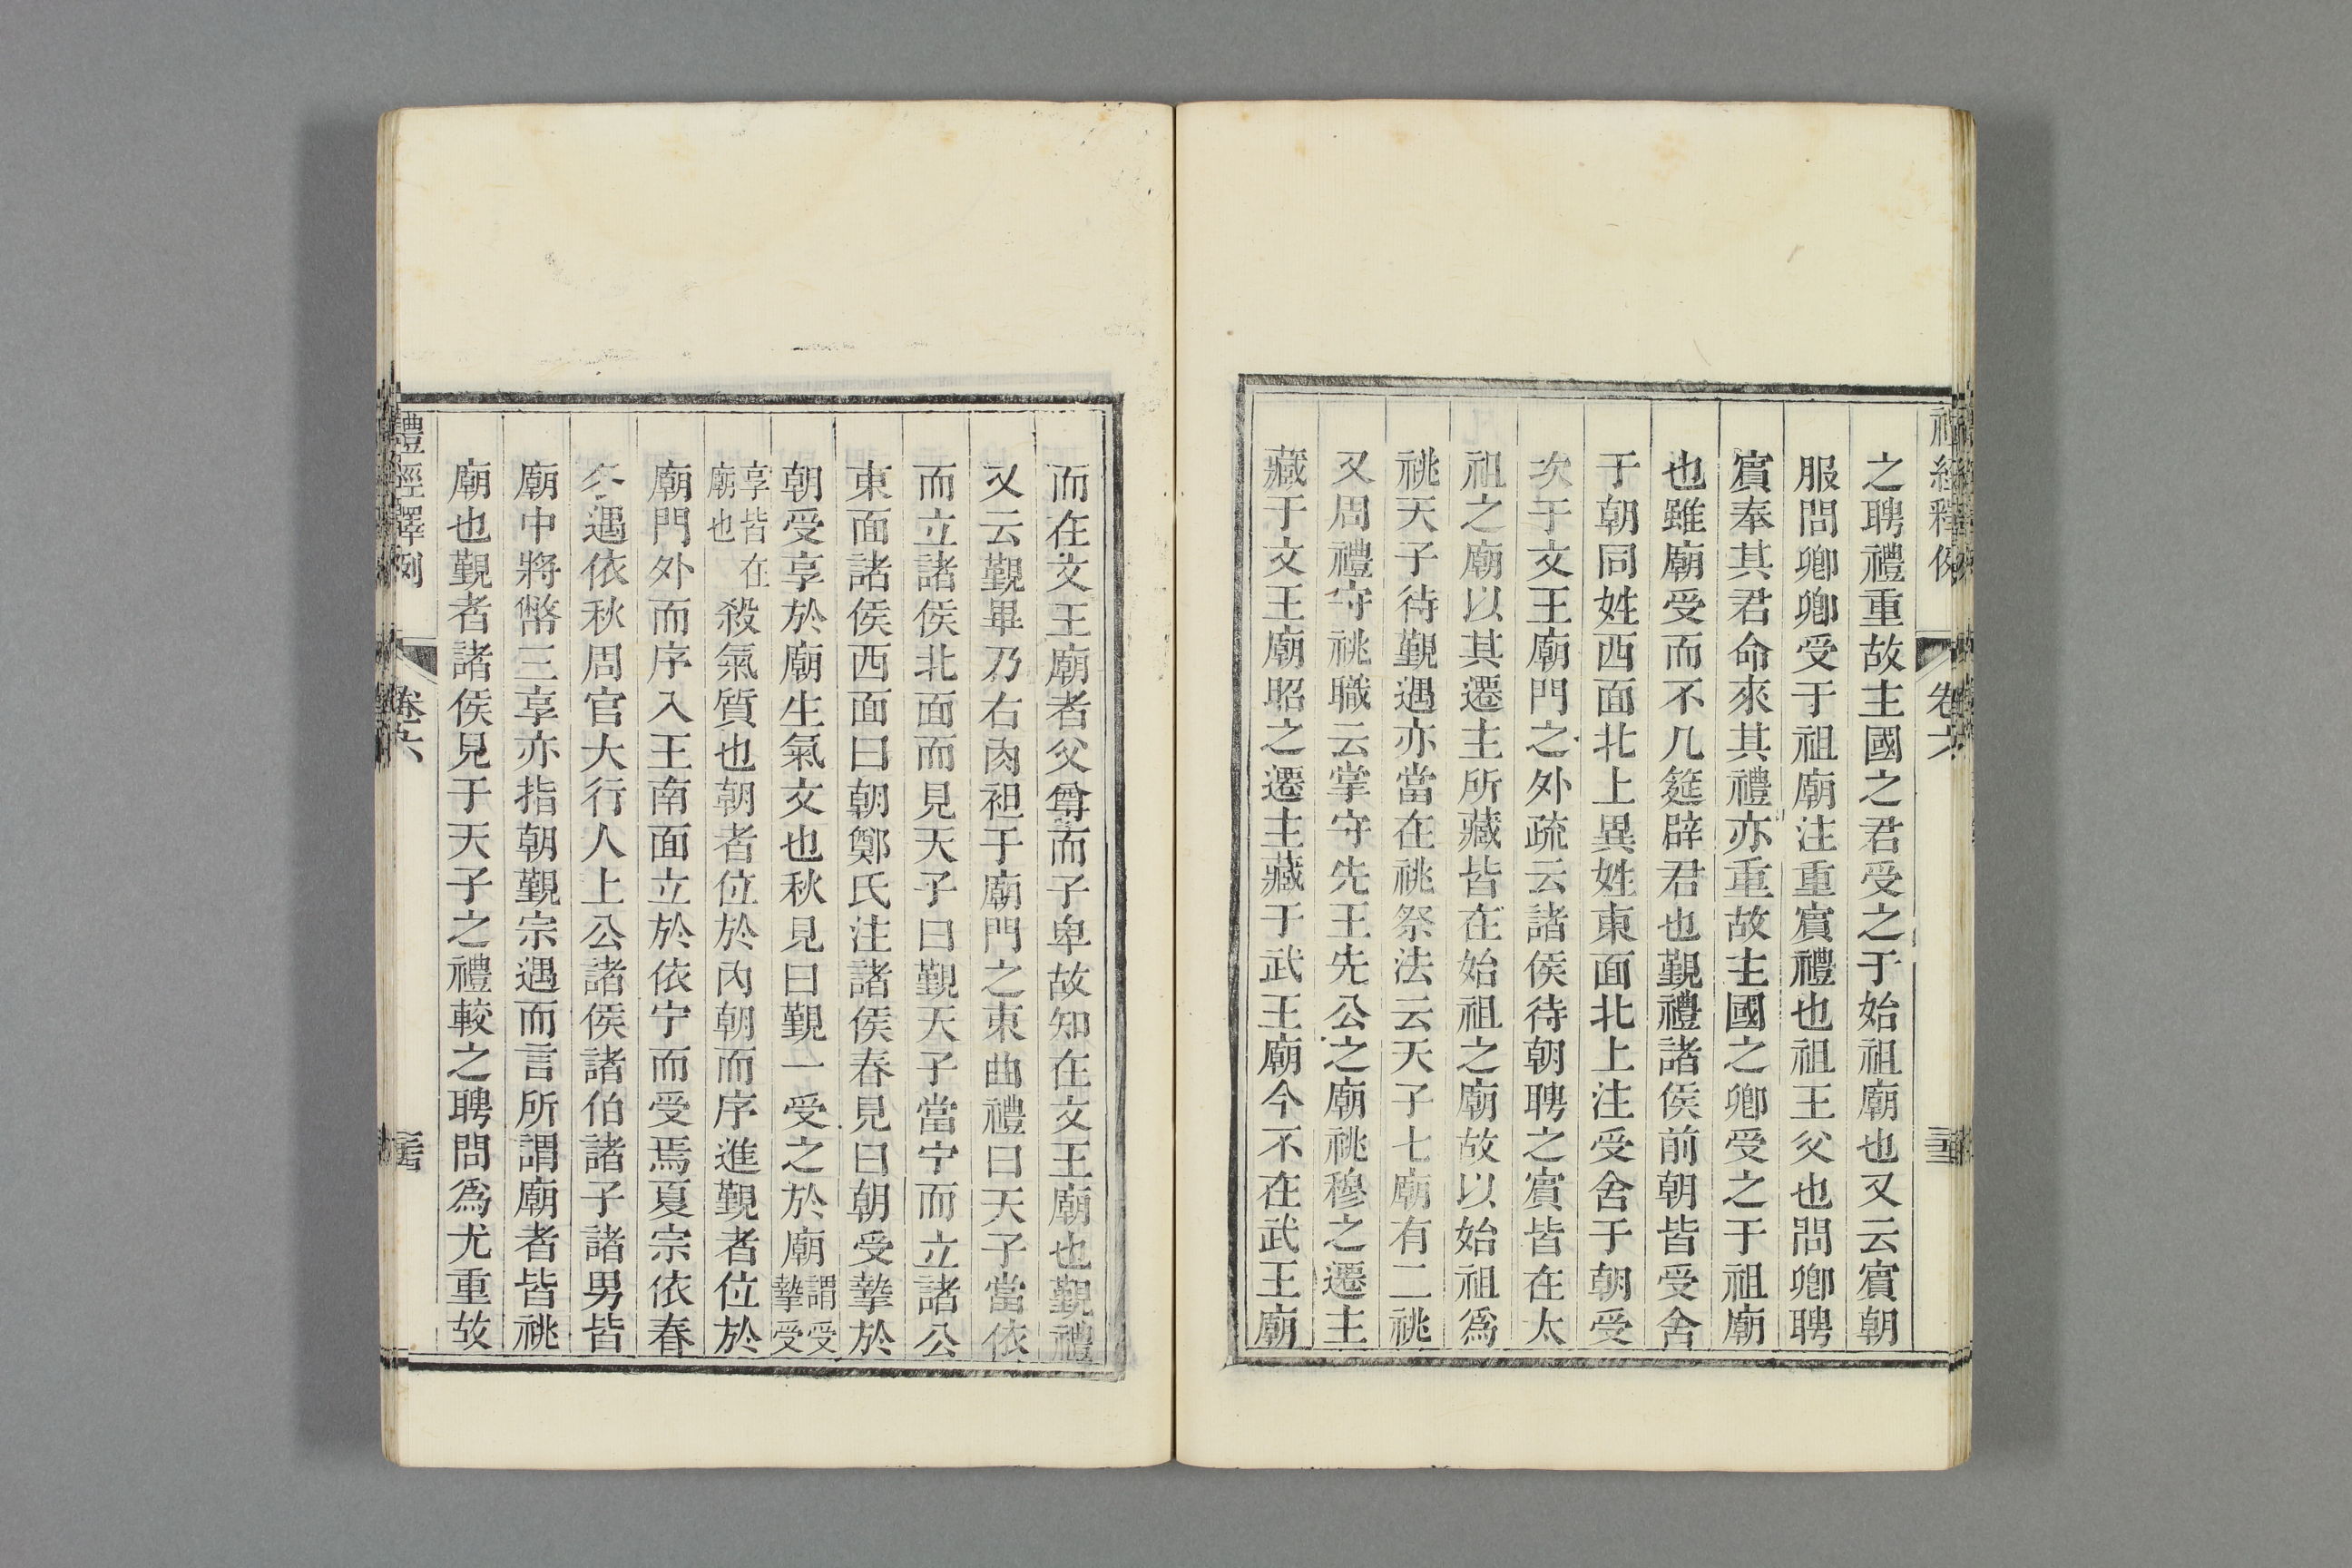 之聘禮重故主國之君受之于始祖廟也又云賓朝
服問卿卿受于祖廟注重賓禮也祖王父也問卿聘
賓奉其君命來其禮亦重故主國之卿受之于祖廟
也雖廟受而不几筵辟君也覲禮諸侯前朝皆受舍
于朝同姓西面北上異姓東面北上注受舍于朝受
次于文王廟門之外疏云諸侯待朝聘之賓皆在太
祖之廟以其遷主所藏皆在始祖之廟故以始祖爲
祧天子待覲遇亦當在祧祭法云天子七廟有二祧
又周禮守祧職云掌守先王先公之廟祧穆之遷主
藏于文王廟昭之遷主藏于武王廟今不在武王廟
而在文王廟者父尊而子卑故知在文王廟也覲禮
又云覲畢乃右肉袒于廟門之東曲禮曰天子當依
而立諸侯北面而見天子曰覲天子當宁而立諸公
東面諸侯西面曰朝鄭氏注諸侯春見曰朝受摯於
朝受享於廟生氣文也秋見曰覲一受之於廟謂受摯受
享皆在廟也殺氣質也朝者位於內朝而序進覲者位於
廟門外而序入王南面立於依宁而受焉夏宗依春
冬遇依秋周官大行人上公諸侯諸伯諸子諸男皆
廟中將幣三享亦指朝覲宗遇而言所謂廟者皆祧
廟也覲者諸侯見于天子之禮較之聘問爲尤重故
禮經釋例
卷六